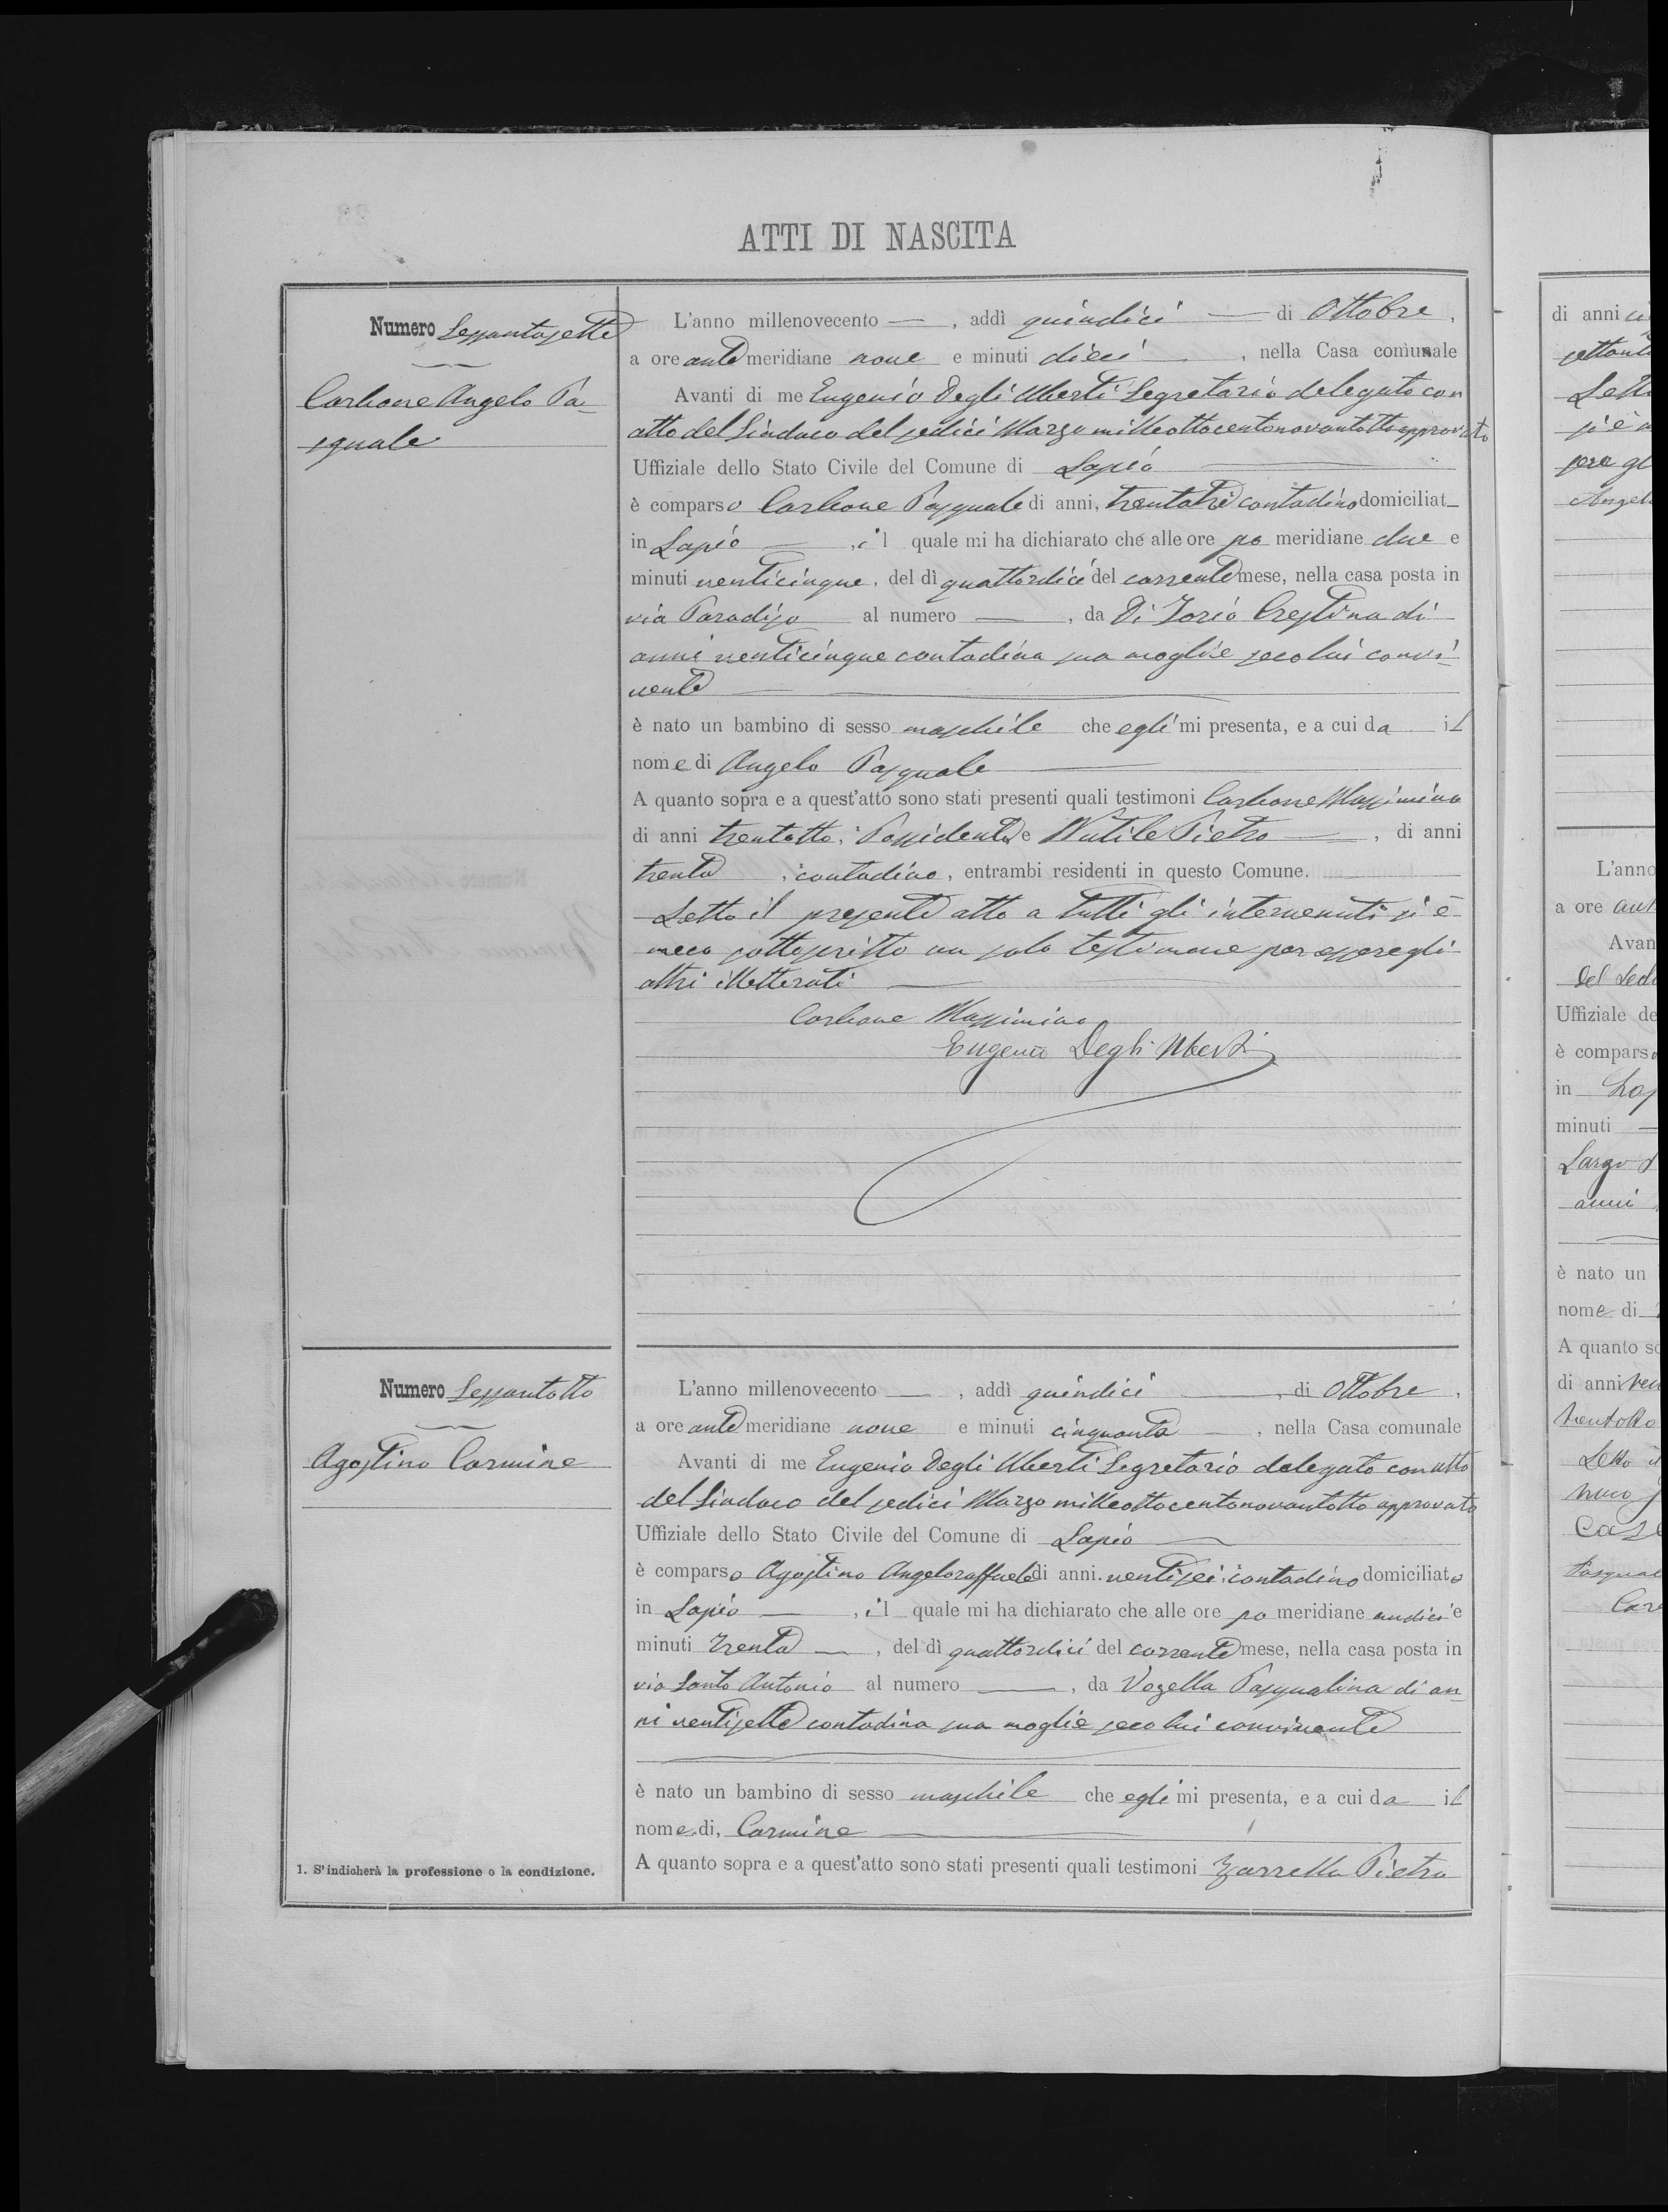 ATTI DI NASCITA
Numero Sessantasette
Carbone Angelo Pa-
squale
L'anno millenovecento —, addì quindici — di Ottobre,
a ore antemeridiane nove e minuti dieci —, nella Casa comunale
Avanti di me Eugenio Degli Uberti Segretario delegato con
atto del Sindaco del sedici Marzo milleottocentonovantotto approvato
Uffiziale dello Stato Civile del Comune di Lapio
è comparso Carbone Pasquale di anni, trentatre contadino domiciliat
in Lapio —, il quale mi ha dichiarato che alle ore po meridiane due e
minuti venticinque, del dì quattordici del corrente mese, nella casa posta in
via Paradiso al numero —, da Di Iorio Crestina di
anni venticinque contadina sua moglie seco lui convi-
vente —
è nato un bambino di sesso maschile che egli mi presenta, e a cui da il
nome di Angelo Pasquale —
A quanto sopra e a quest'atto sono stati presenti quali testimoni Carbone Massimino
di anni trentotto, Possidente e Nutile Pietro —, di anni
trenta, contadino, entrambi residenti in questo Comune.
Letto il presente atto a tutti gli intervenuti si è
meco sottoscritto un solo testimone per essere gli
altri illetterati —
Carbone Massimino
Eugenio Degli Uberti
Numero Sessantotto
Agostino Carmine
L'anno millenovecento —, addì quindici —, di Ottobre,
a ore antemeridiane nove e minuti cinquanta —, nella Casa comunale
Avanti di me Eugenio Degli Uberti Segretario delegato con atto
del Sindaco del sedici Marzo milleottocentonovantotto approvato
Uffiziale dello Stato Civile del Comune di Lapio —
è comparso Agostino Angeloraffaele di anni. ventisei, contadino domiciliato
in Lapio —, il quale mi ha dichiarato che alle ore po meridiane undici e
minuti trenta —, del dì quattordici del corrente mese, nella casa posta in
via Santo Antonio al numero —, da Vozella Pasqualina di an-
ni ventisette contadina sua moglie seco lui convivente
è nato un bambino di sesso maschile che egli mi presenta, e a cui da il
nome di, Carmine —
A quanto sopra e a quest'atto sono stati presenti quali testimoni Zarrella Pietro
1. S'indicherà la professione o la condizione.
di anni
Lett
si è
sere gl
Angel
L'anno
a ore ant
Avan
del Sed
Uffiziale de
è comparso
in Lap
minuti —
Largo
anni
è nato un
nome di
A quanto so
di anni ven
trentotto
Letto il
meco
Pasqual
Car